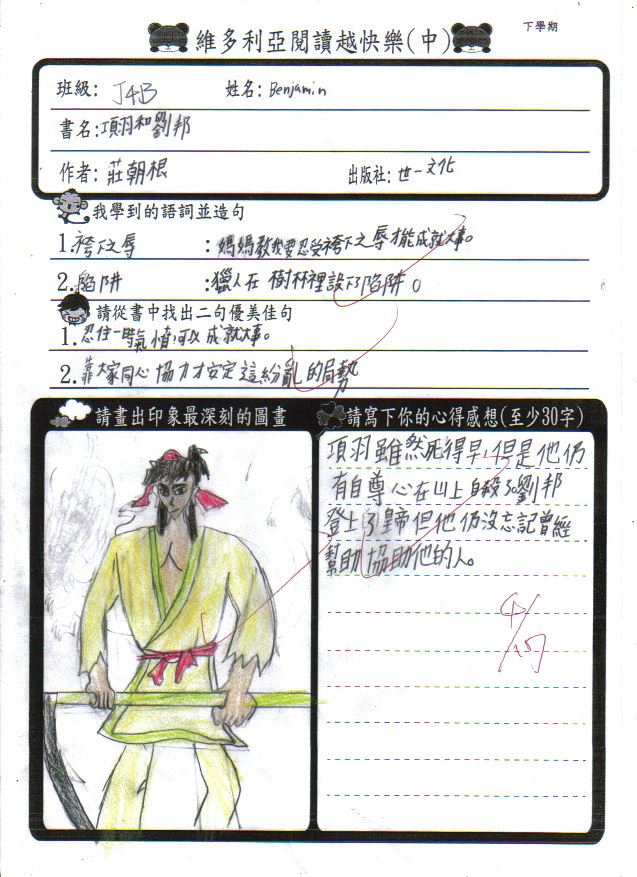 下學期
維多利亞閱讀越快樂(中)
班級: J4B 姓名: Benjamin
書名:項羽和劉邦
作者: 莊朝根 出版社: 世一文化
我學到的語詞並造句
1.袴下之辱 :媽媽教我要忍受袴下之辱才能成就大事。
2.陷阱 :獵人在樹林裡設下陷阱。
請從書中找出二句優美佳句
1.忍住一時氣憤,可以成就大事。
2.靠大家同心協力才安定這紛亂的局勢
請畫出印象最深刻的圖畫
請寫下你的心得感想(至少30字)
項羽雖然死得早,但是他仍
有自尊心在山上自殺了。劉邦
登上了皇帝但他仍沒忘記曾經
幫助協助他的人。